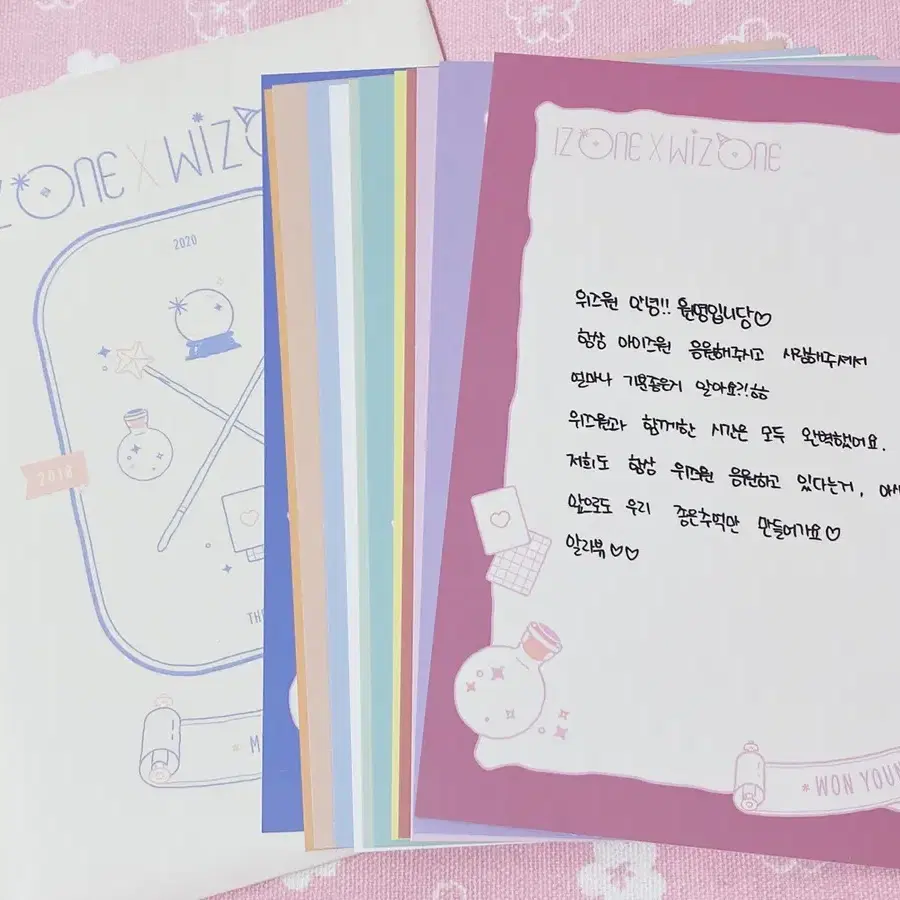 IZ*ONE X WIZ
2020
2018
TH
* M
IZ*ONE X WIZ*ONE
위즈원 안녕!! 원영입니당♡
항상 아이즈원 응원해주시고 사랑해주셔서
얼마나 기분좋은지 알아요?!ㅎㅎ
위즈원과 함께한 시간은 모두 완벽했어요.
저희도 항상 위즈원 응원하고 있다는거,
앞으로도 우리 좋은추억만 만들어가요♡
알라뷰♡♡
* WON YOUN